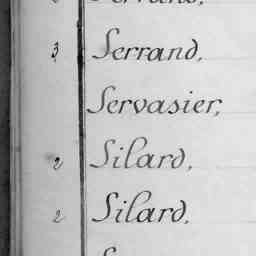 3 Serrand,
Servasier,
2 Silard,
2 Silard,